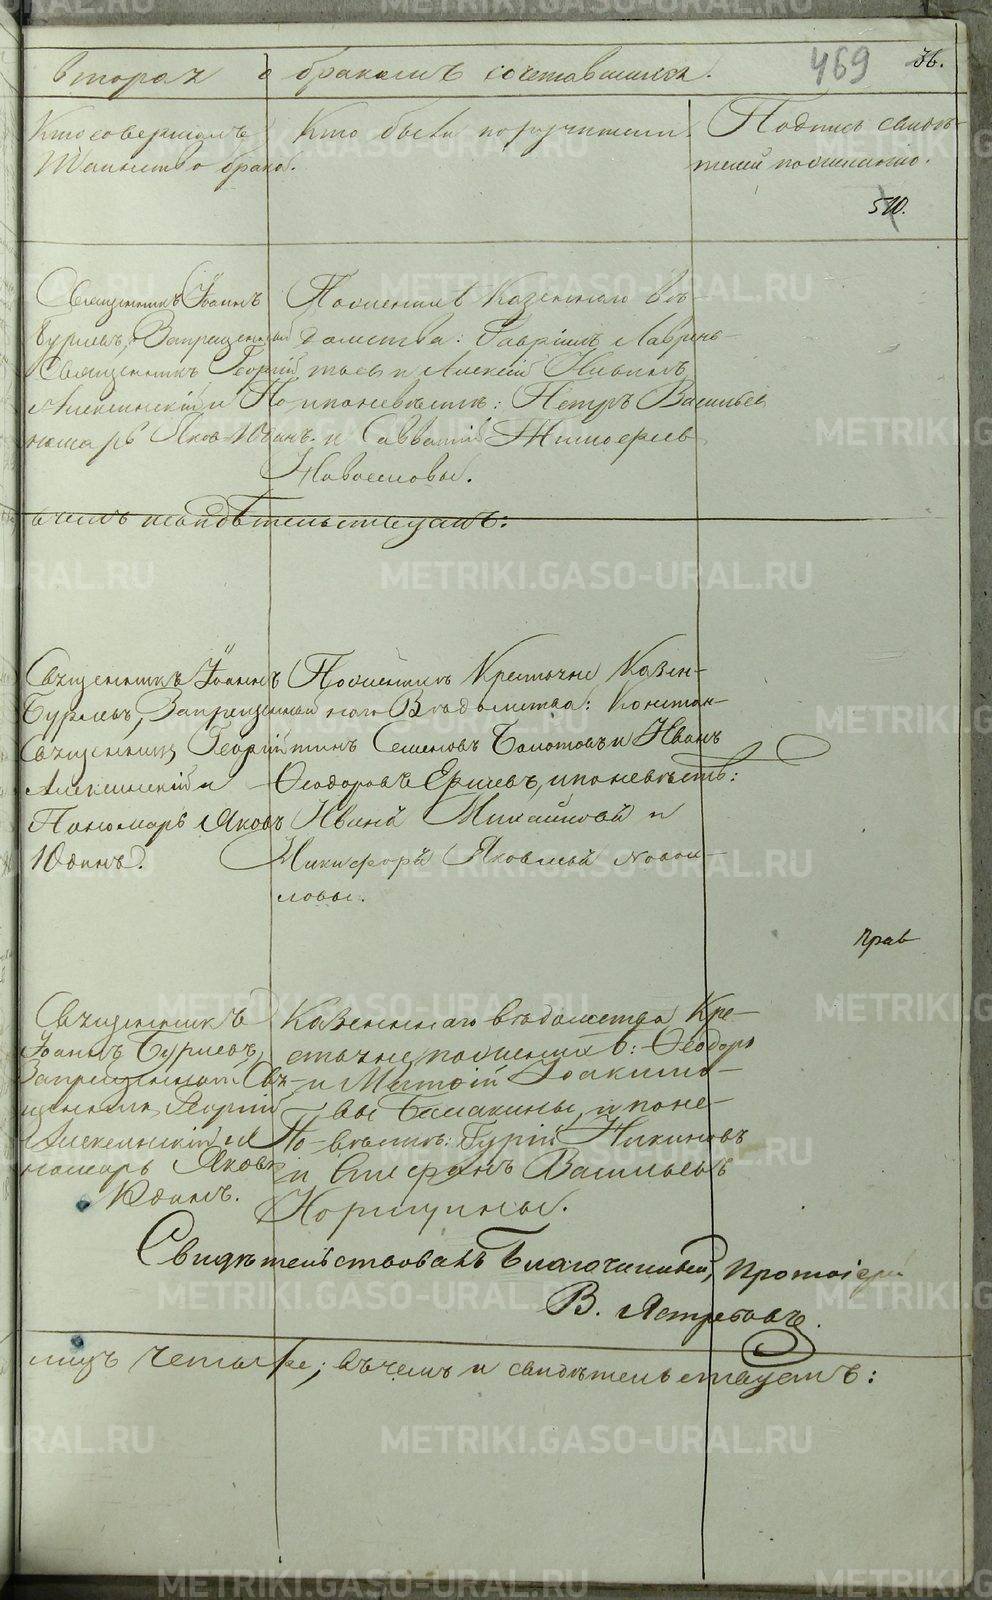 вторая о бракомъ сочетавшихся.
469
36.
Кто совершалъ
Таинство брака.
Кто были поручители.
Подпись свидѣ-
телей по желанію.
510.
Священникъ Іоаннъ
Буриевъ, Запрещенный
Священникъ Георгій
Алексинскій и По-
номарь Яковъ Юдинъ.
По женихѣ Казеннаго вѣ-
домства: Гавріилъ Лаврень-
тьевъ и Алексій
и по невѣстѣ: Петръ Васильев
и Савватій Тимофеев
Новоселовы.
въ чемъ и свидѣтельствуемъ:
Священникъ Іоаннъ
Буриевъ, Запрещенный
Священникъ Георгій
Алексинскій и
Пономарь Яковъ
Юдинъ.
По женихѣ Крестьяне Казен-
наго Вѣдомства: Констан-
тинъ Семеновъ Болотовъ и Иванъ
Ѳеодоровъ Ершевъ, и по невѣстѣ:
Иванъ Михайловъ и
Никифоръ Яковлевъ Новосе-
ловы.
прав
Священникъ
Іоаннъ Буриевъ,
Запрещенный Свя-
щенникъ Георгій
Алексинскій и По-
номарь Яковъ
Юдинъ.
Казеннаго вѣдомства Кре-
стьяне, по женихѣ: Ѳеодоръ
и Матѳій Іоакимо-
вы Балакины, и по не-
вѣстѣ: Гурій Никиновъ
и Стефанъ Васильевъ
Норицины.
Свидѣтельствовалъ Благочинный, Протоіерей
В. Ястребовъ.
лицъ четыре; въ чемъ и свидѣтельствуемъ:
METRIKI.GASO-URAL.RU